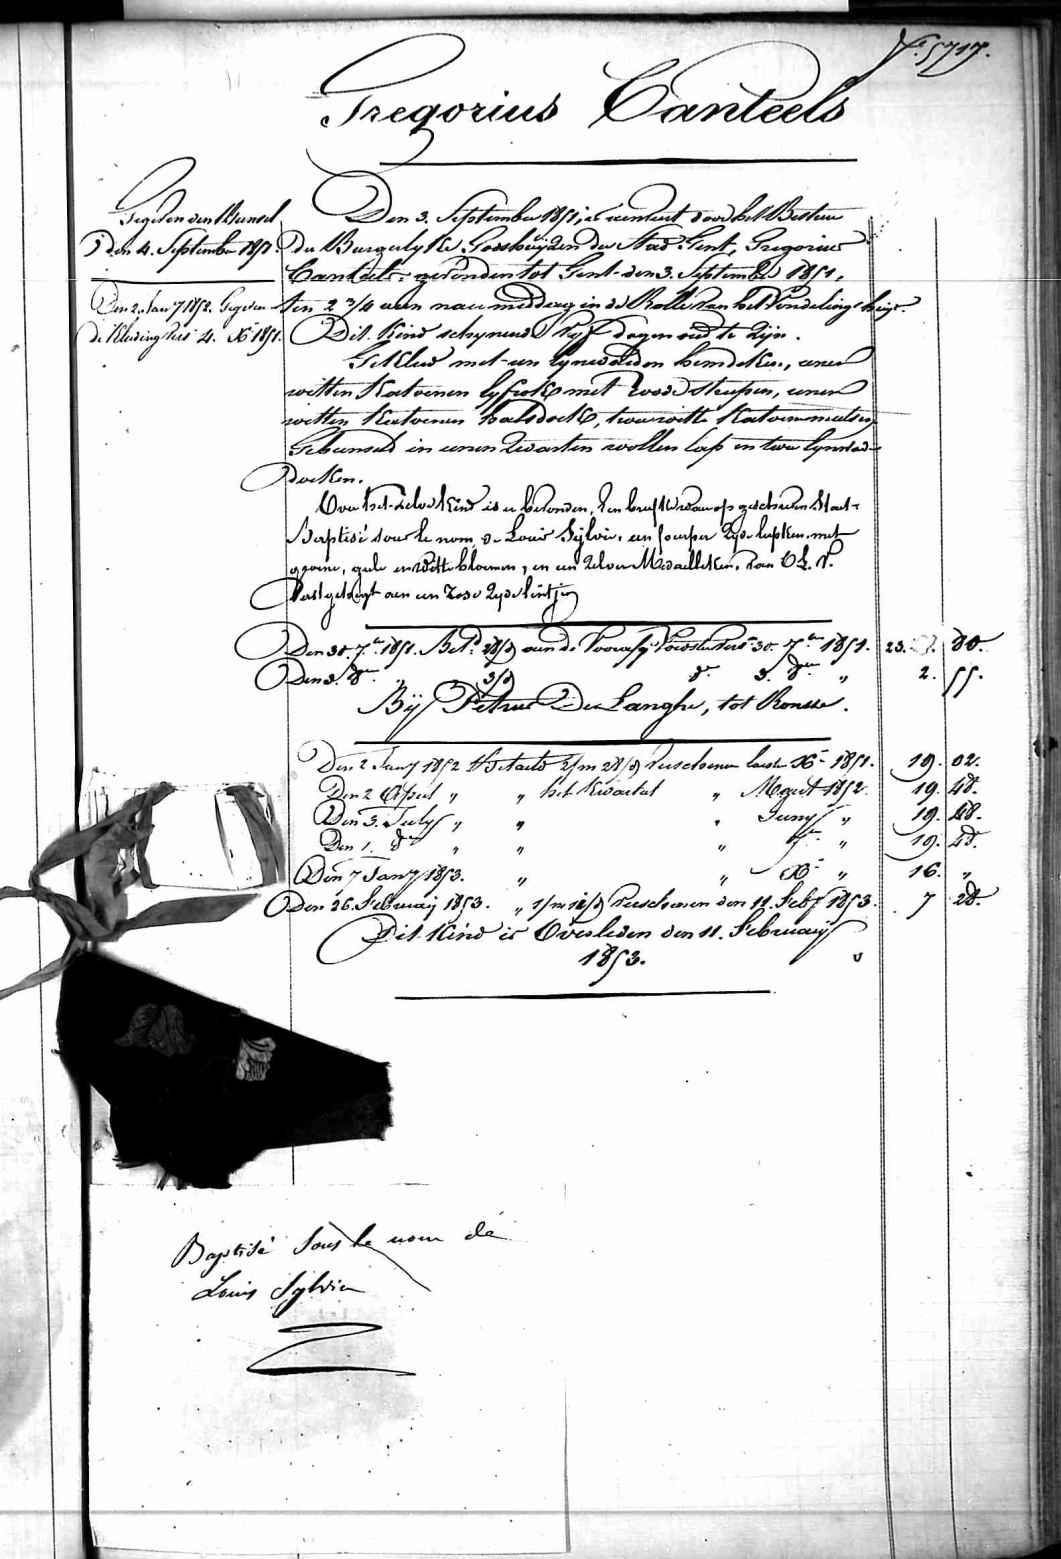 N.º 5717.
Gregorius Canteels
Gegeven den Bunsel
den 4. September 1851.
Den 2. Jany 1852. Gegeven
de Kleeding Kers 4. Xb 1851.
Den 3. September 1851, is besteed door het Bestuur
der Burgerlyke Godshuyzen der Stad Gent, Gregorius
Canteels. gevonden tot Gent den 3. September 1851,
ten 2 3/4 uren naer middag in de Rolle van het Vondelings huys.
Dit Kind schynend vyf dagen oud te Zyn.
Gekleed met een lynwaeden hemdeken, eenen
witten Katoenen lyfrokje met roode streepen, eenen
witten Katoenen halsdoek, twee witte Katoenen mutsen
Gebunseld in eenen Zwarten wollen lap en twee lynwaede
doeken.
Over het zelve Kind is er bevonden, Een briefken waer op geschreven staet
Baptisé sous le nom de Louis Sylvie. een purper Zyde lapken met
groene, geele en witte bloemen, en een Zilver Medaelleken van O. L. V.
Vast gelegt aen een Rose Zyde lintjen
Den 30. 7.ber 1851. Bet.d 28/d aen de Voorzg Voedster 30. 7ber 1851. 23. 80.
Den 3. 8.ber " 3/d d.º 3. 8.ber " 2. 55.
Bij Petrus De Langhe, tot Ronsse.
Den 2 Jany 1852 Betaeld 2/m 28/d Verschenen laeste Xb 1851. 19. 02.
Den 2 April " " het Kwartael " Maert 1852. 19. 48.
Den 3. July " " " Juny " 19. 48.
Den 1. 8ber " " " 7ber " 19. 48.
Den 7 Jany 1853. " " Xb " 16. "
Den 26. February 1853. " 1/m 12/d Verschenen den 11. Feby 1853. 7 28.
Dit Kind is Overleden den 11. February
1853.
Baptisé sous le nom de
Louis Sylvie